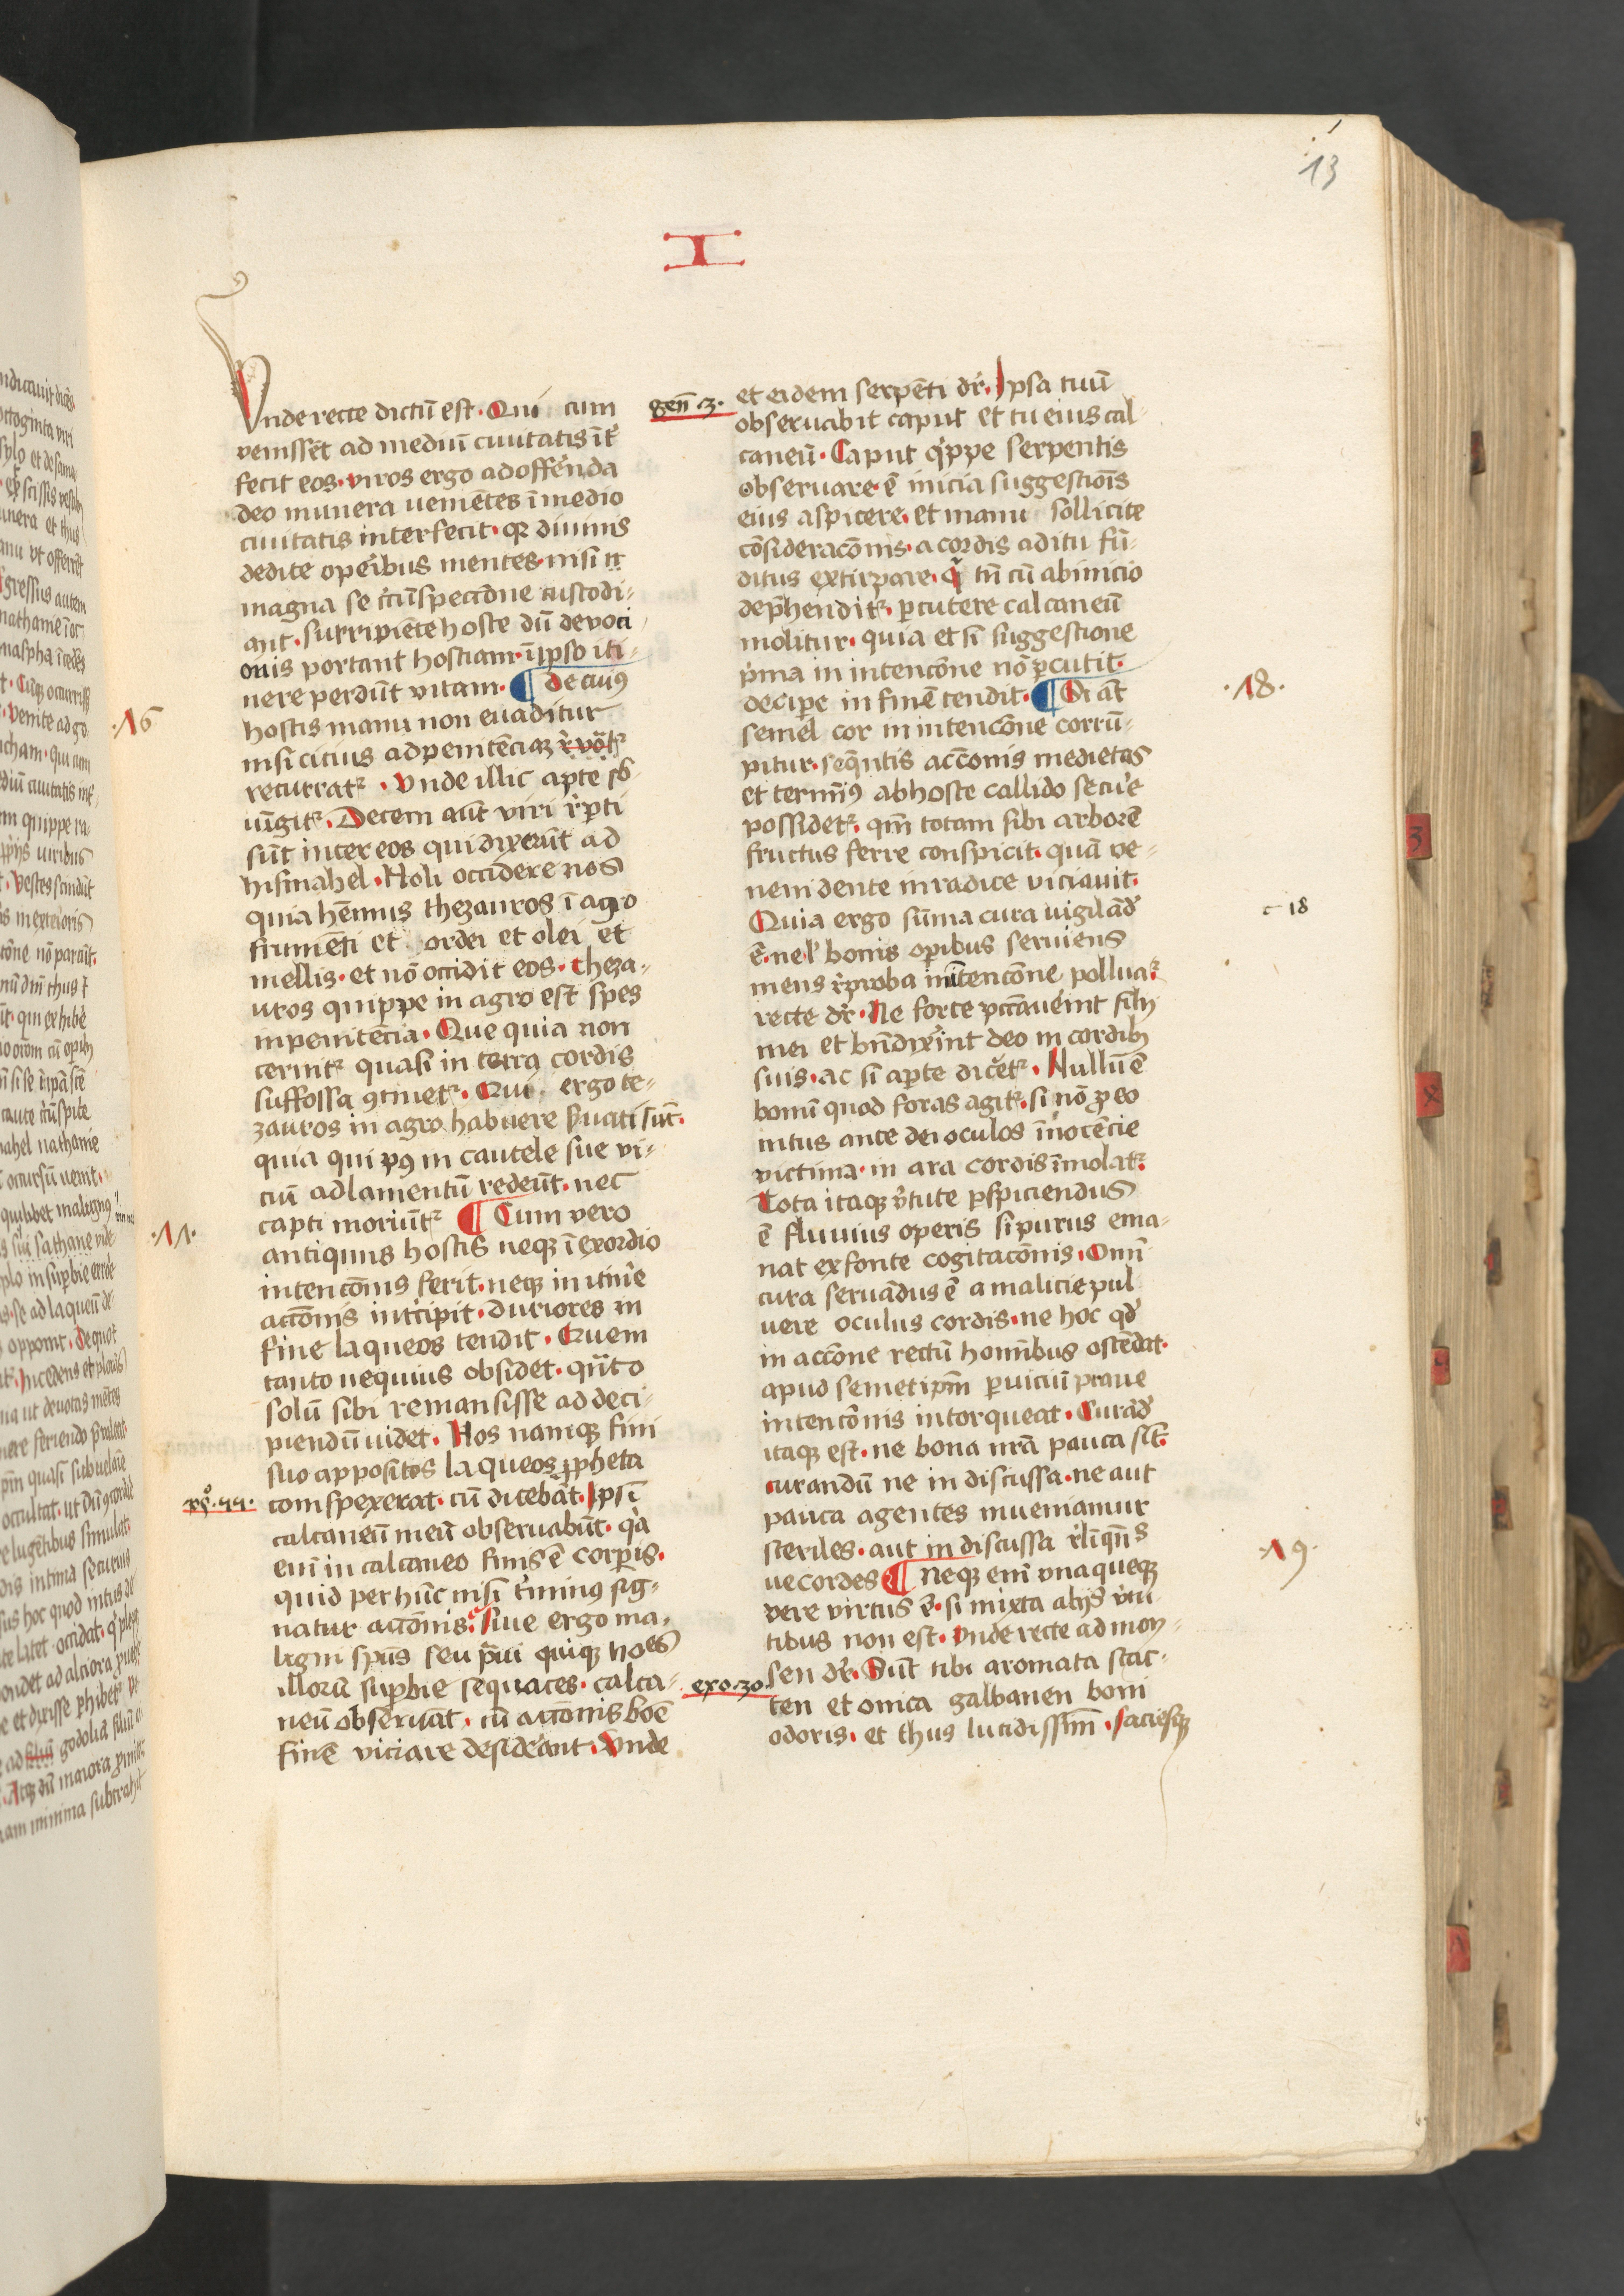 13
I
Vnde recte dictū est. Qui cum
venissēt ad mediū ciuitatis īt̄
fecit eos. viros ergo ad offērēda
deo munera ueniētes ī medio
ciuitatis interfecit. qꝛ diuinis
dedite op̄ibus mentes. nisi cū
magna se circūspectōne custodi-
ant. surripiēte hoste dū deuoci
onis portant hostiam. ī ipso iti-
nere perdūt vitam. ¶ De cuiꝰ
hostis manu non euaditur
nisi citius ad penitēciaꝫ
recurratᷣ. Vnde illic apte sb̄
iūgitᷣ. Decem aut̄ viri r̄pti
sūt inter eos qui dixerūt ad
hismahel. Noli occidere nos
quia hēmus thezauros ī agro
frumēti et ordei et olei et
mellis. et nō occidit eos. theza-
uros quippe in agro est spes
in penitēcia. Que quia non
cernitᷣ quasi in terra cordis
suffossa ꝯtinetᷣ. Qui ergo te-
zauros in agro habuere ẜuati sūt.
quia qui pꝰ in cautele sue vi-
ciū ad lamentū redeūt. nec
capti moriūtᷣ ¶ Cum vero
antiquus hostis neqꝫ ī exordio
intencōnis ferit. neqꝫ in itin̄e
accōnis intc̄ipit. duriores in
fine laqueos tendit. Quem
tanto nequius obsidet. qn̄to
solū sibi remansisse ad deci-
piendū uidet. Hos namqꝫ fini
suo appositos laqueos ꝓpheta
conspexerat. cū dicebat. Ipsī
calcaneū meū obseruabūt. qͥa
enī in calcaneo finis ē corꝑis.
quid per hūc nisi t̄minꝰ sig-
natur accōnis. Siue ergo ma-
ligni spūs seu praui quiqꝫ hoēs
illorū suꝑbie sequaces. calca-
neū obseruāt. cū accōnis boē
finē viciare desiderāt. Vnde
·16
·17·
ps̄·55·
genn̄ 3.
exo. 30.
et eidem serpēti dr̄. Ipsa tuū
obseruabit caput et tu eius cal-
caneū. Caput qͥppe serpentis
obseruare ē inicia suggestiōis
eius aspicere. et manu sollicite
cōsideracōnis. a cordis aditu fū-
ditus extirpare. qͥ tn̄ cū ab inicio
dep̄henditᷣ. ꝑcutere calcaneū
molitur. quia et si suggestione
p̄ma in intencōne nō ꝑcutit.
deciꝑe in finē tendit. ¶ Si aūt
semel cor in intencōne corrū-
pitur. seqn̄tis accōnis medietas
et termīꝰ ab hoste callido secūe
possidetᷣ. qm̄ totam sibi arborē
fructus ferre conspicit. quā ve-
neni dente in radice viciauit.
Quia ergo sūma cura uigilādū
ē. ne ł bonis oꝑibus seruiens
mens r̄proba in intencōne polluatᷣ.
recte dr̄. Ne forte peccauerint filij
mei et bn̄dixerint deo in cordibꝫ
suis. ac si aꝑte dicetᷣ. Nullū ē
bonū quod foras agitᷣ. si nō ꝓ eo
intus ante dei oculos īnocēcie
victima in ara cordis īmolatᷣ.
Tota itaqꝫ v̄tute ꝑspiciendus
ē fluuius operis si purus ema-
nat ex fonte cogitacōnis. Omī
cura seruādus ē a malicie pul
uere oculus cordis. ne hoc qd̄
in accōne rectū homībus ostēdat.
apud semetipm̄ ꝑ uiciū praue
intencōnis intorqueat. Curādū
itaqꝫ est. ne bona nr̄a pauca sīt.
curandū ne in discussa. ne aut
pauca agentes inueniamur
steriles. aut in discussa r̄linqn̄s
uecordes ¶ Neqꝫ enī vna queqꝫ
vere virtus ē. si mixta alijs v̄tu
tibus non est. Vnde recte ad moy-
sen dr̄. Sūt tibi aromata stac-
ten et onica galbanen boni
odoris. et thus lucidissīm. faciesqꝫ
·18·
c 18
·19·